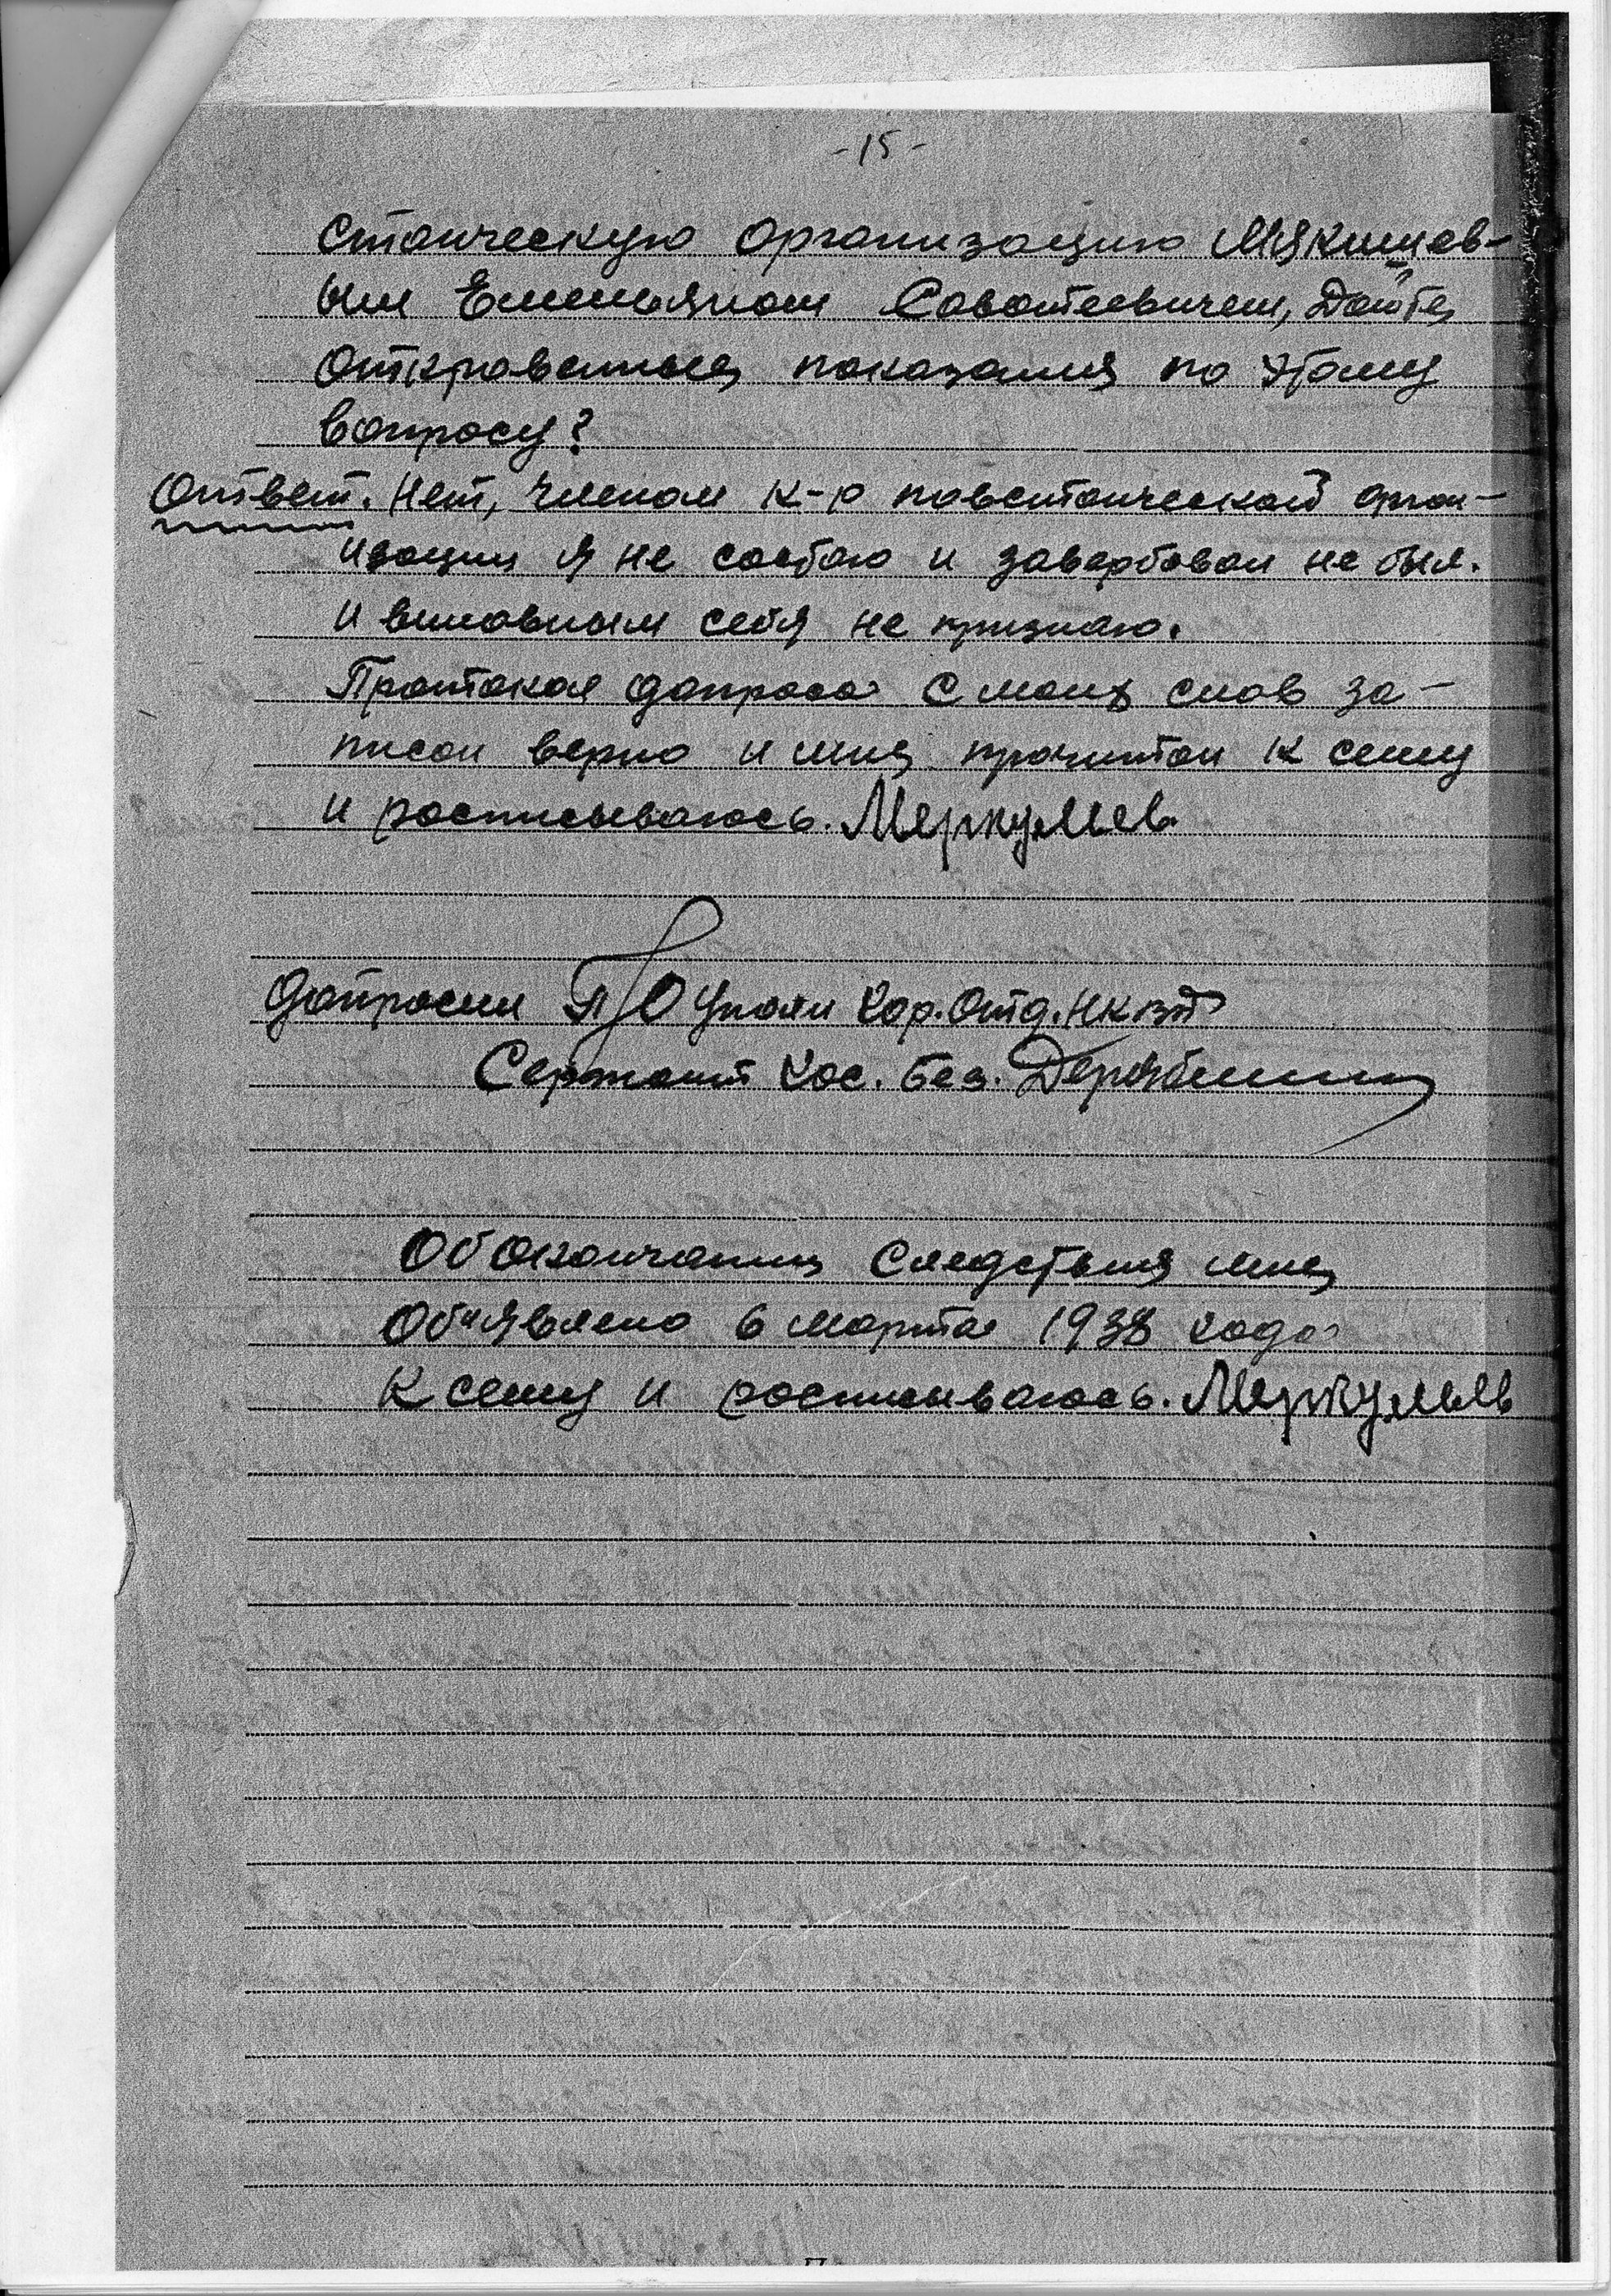 -15-
станческую организацию Мякишев-
ым Емельяном Саватеевичем, Дайте
откравенные показания по этому
вопросу?
Ответ. Нет, членом к-р павстанческой орган-
изации я не состаю и завербован не был.
и виновным себя не признаю.
Протакол допроса с моих слов за-
писан верно и мне прочитан к сему
и росписываюсь. Меркульев
Допросил
Кар. Отд. НКВД
Сержант Гос. Без. Дерябин
Об окончании следствия мне
Объявлено 6 марта 1938 года
К сему и росписываюсь. Меркульев